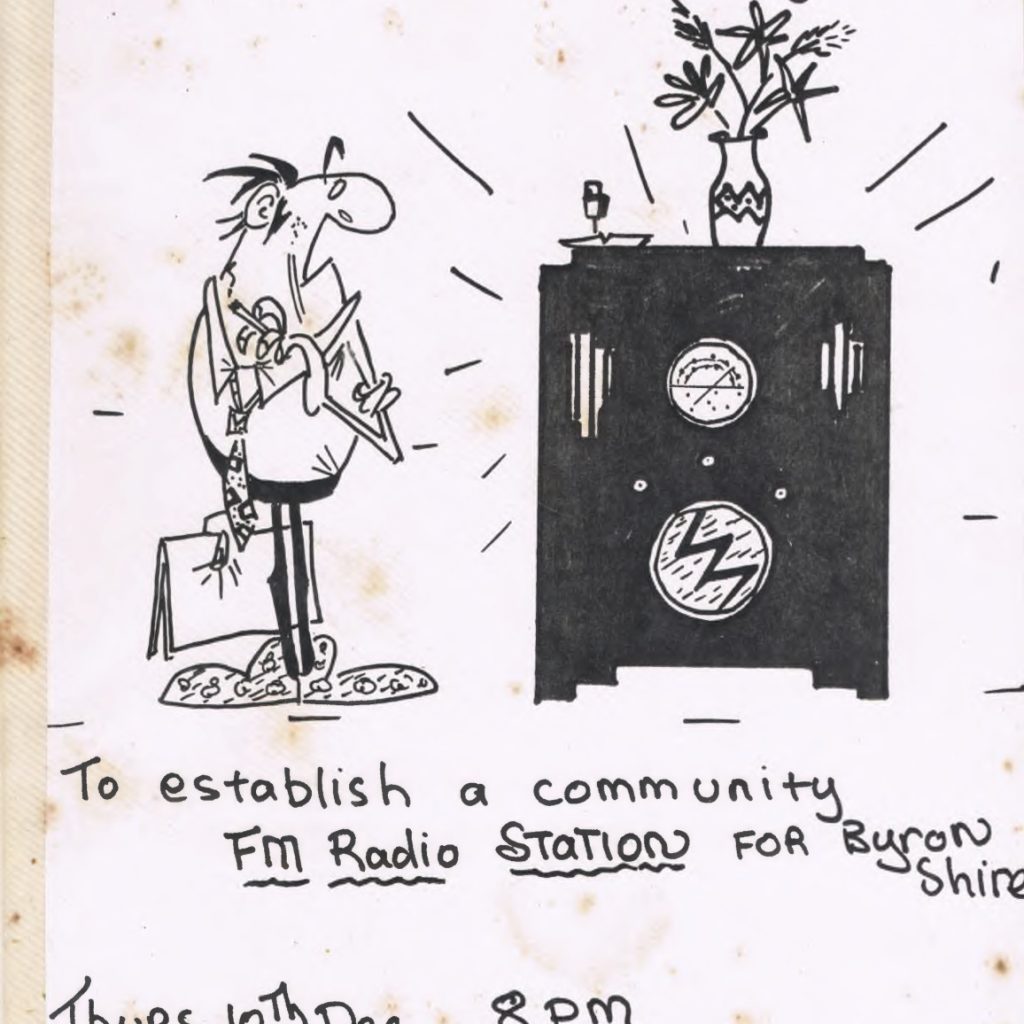 To establish a community
FM Radio STATION FOR Byron
Shire
Thurs 10th Dec 8 PM